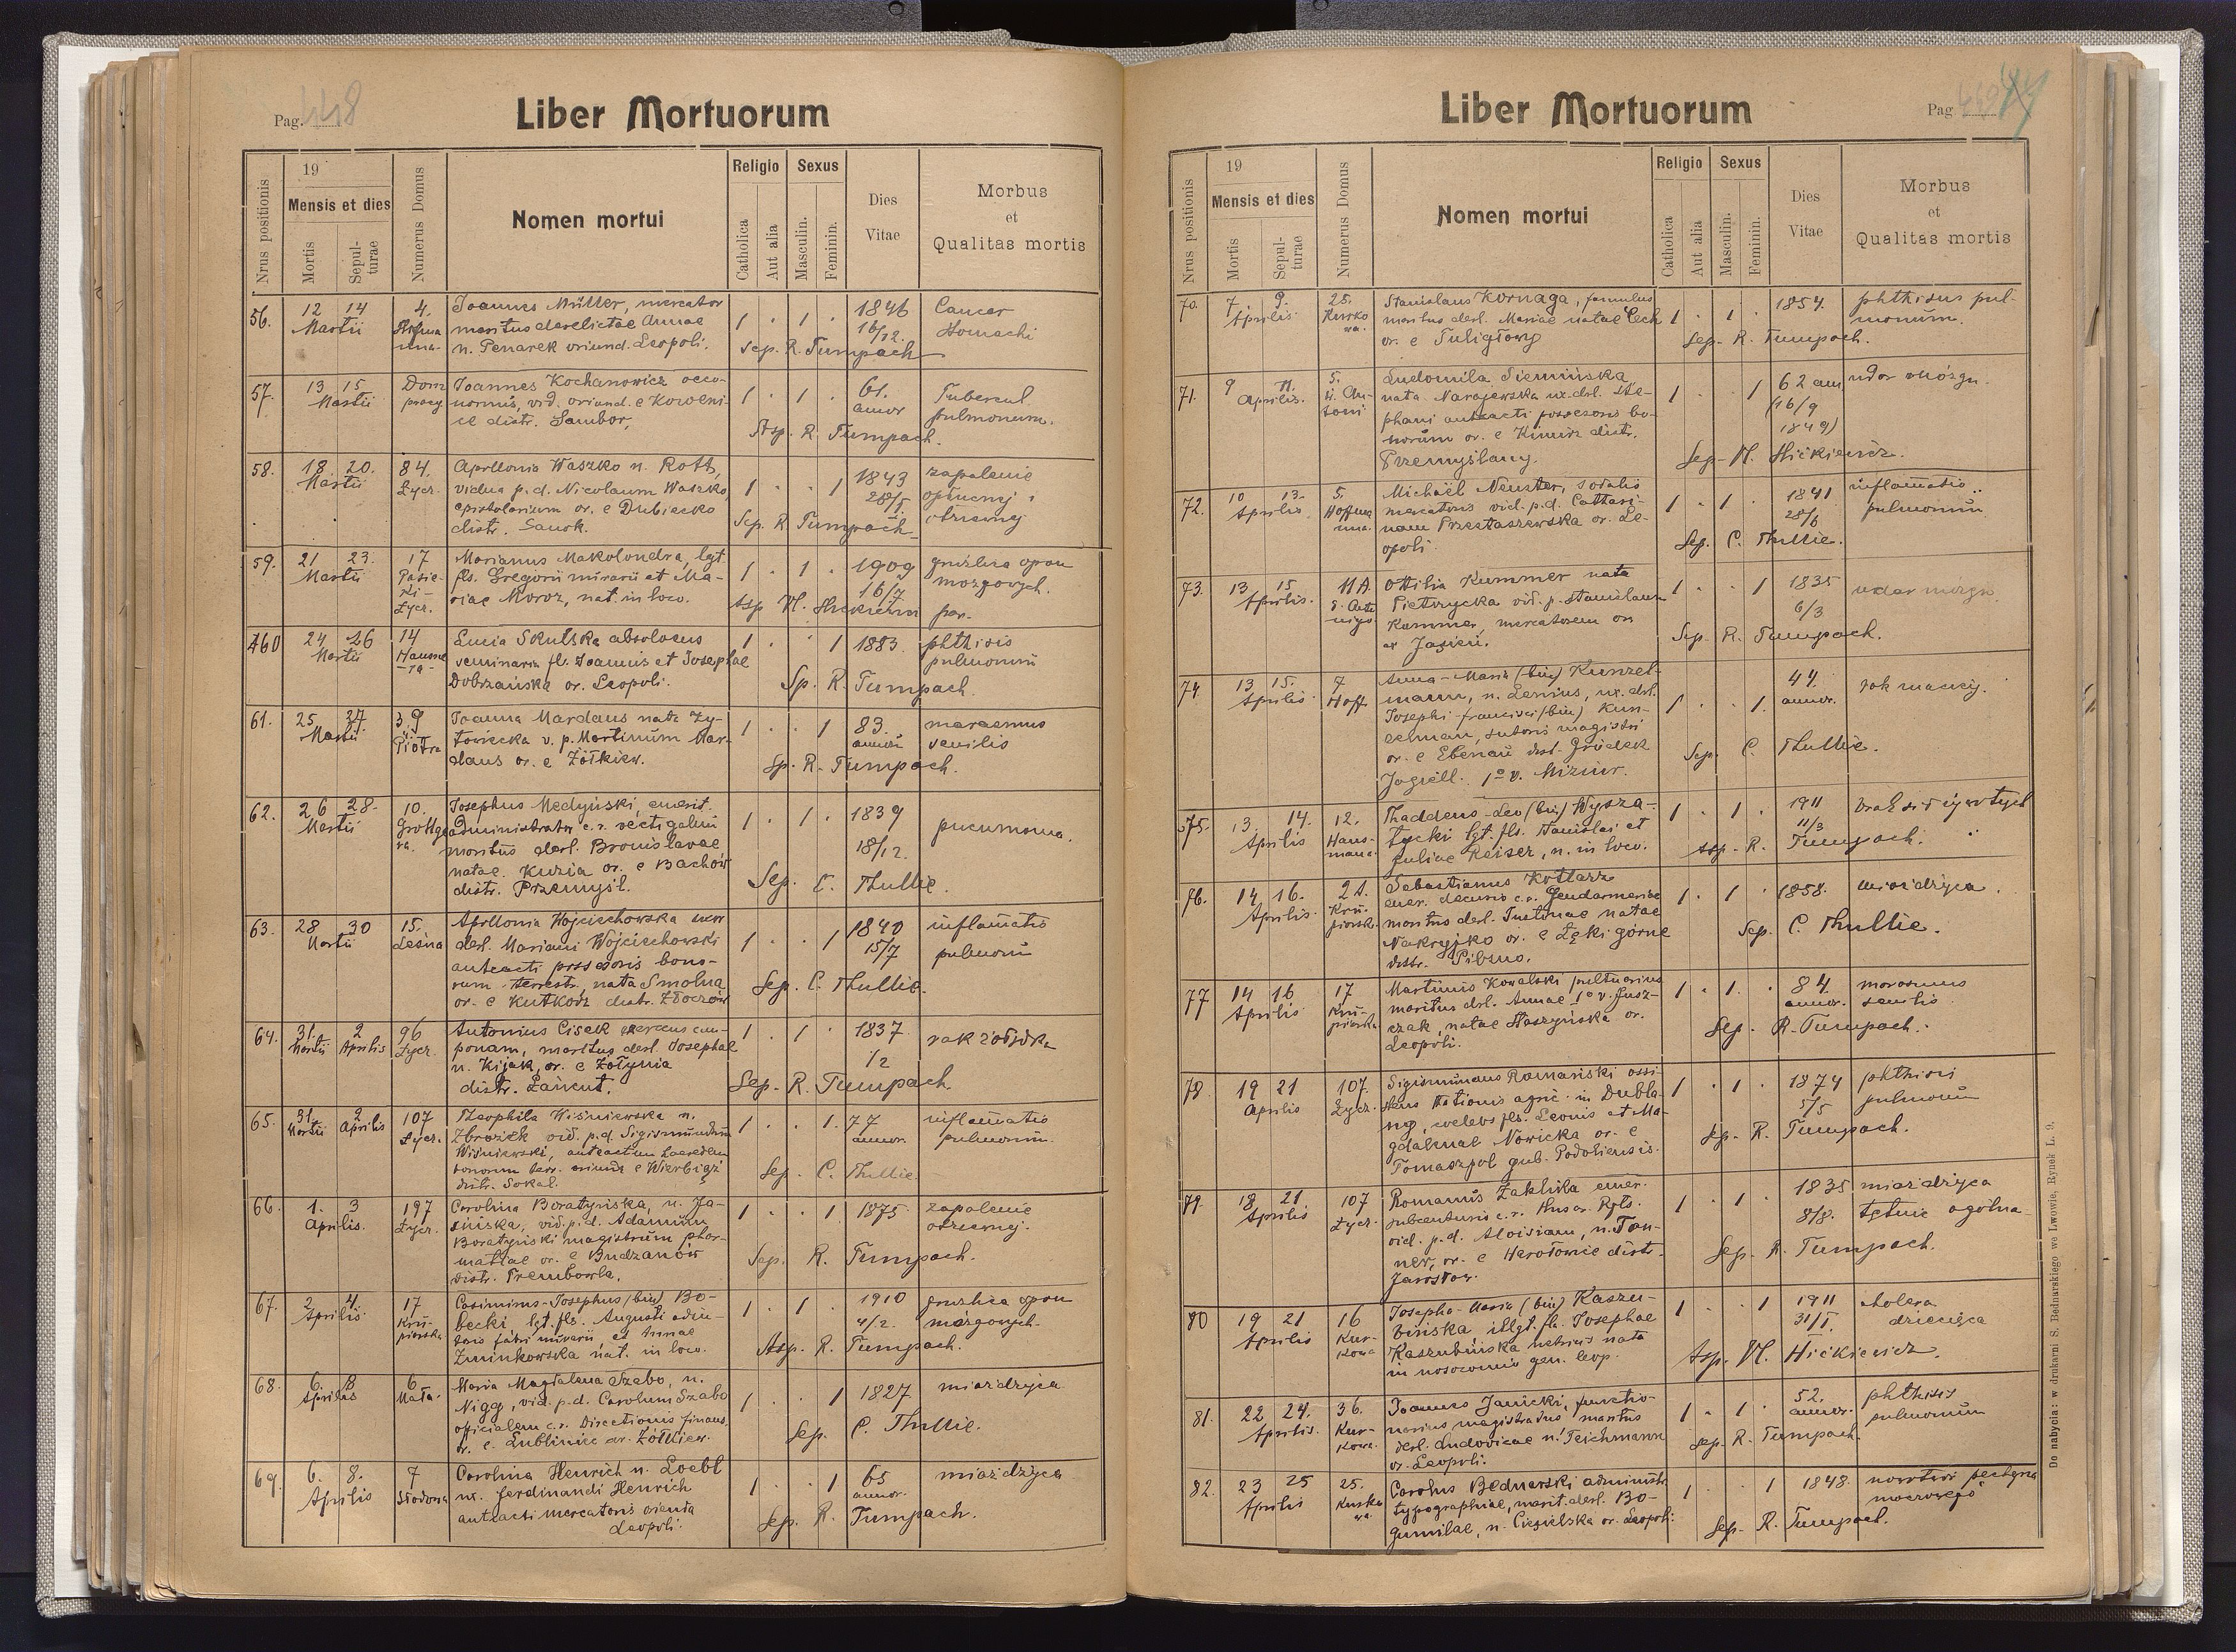 Pag. 448
Liber Mortuorum
Nrus positionis
19
Mensis et dies
Mortis
Sepulturae
Numerus Domus
Nomen mortui
Religio
Catholica
Aut alia
Sexus
Masculin.
Feminin.
Dies Vitae
Morbus et Qualitas mortis
56. 12 14 4. Joannes Müller, mercator 1 . 1 . 1846 Cancer
Martii maritus derelictae Annae 16/12. stomachi
n. Penarek oriund. Leopoli. Sep. R. Tumpach
57. 13 15 Dom Joannes Kochanowicz oeco- 1 . 1 . 61. Tubercul.
Martii pracy nomus, vid. oriund. e annor pulmonum.
distr. Sambor, Asp. R. Tumpach.
58. 18. 20. 84. Apollonia Waszko n. Roth, 1 . . 1 1843 zapalenie
Martii Łycz. vidua p.d. Nicolaum Waszko, 28/5 opłucnej i
epistolarium or. e Dubiecko otrzewnej
distr. Sanok. Sep. R. Tumpach
59. 21 23. 17 Marianus Makolondra, lgt. 1 . 1 . 1909 gruźlica opon
Martii fls. Gregorii murarii et Ma- 16/7 mozgowych.
Łycz. riae Moroz, nat. in loco. Asp. Wł. Hićkiewicz par.
460 24 26 14 Lucia Skulska absolvens 1 . . 1 1883. phthisis
Martii seminarii fl. Joannis et Josephae pulmonum
Dobrzańska or. Leopoli. Sp. R. Tumpach.
61. 25 27 3.9 Joanna Mardaus nata Zy- 1 . . 1 83. marasmus
Martii Piotra towiecka v. p. Martinum Mar- annor senilis
daus or. e Żółkiew. Sp. R. Tumpach.
62. 26 28. 10. Josephus Medyński, emerit. 1 . 1 . 1839 pneumonia.
Martii Grottge administrator c.r. vectigalium 18/12.
ra. maritus derl. Bronislavae
natae Kuzia or. e Bachów
distr. Przemyśl. Sep. C. Thullie.
63. 28 30 15. Apollonia Wojciechowska uxor 1 . . 1 1840 inflamatio
Martii Leśna derl. Mariani Wojciechowski 15/7 pulmonum
anteacti possesoris bono-
rum terrestr., nata Smolna
or. e Kutkorz distr. Złoczów Sep. C. Thullie.
64. 31. 2 96 Antonius Cisek exercens cau- 1 . 1 . 1837 rak żołądka
Martii Aprilis Łycz. ponam, maritus derl. Josephae 1/2
n. Kijak, or. e Żołynia
distr. Łańcut. Sep. R. Tumpach
65. 31. 2 107 Theophila Wiśniewska n. 1 . . 1. 77 inflamatio
Martii Aprilis Łycz. Zbrozek vid. p.d. Sigismundum annor. pulmonum.
Wiśniewski, anteactum haeredem
bonorum terr. oriunda e Wierbiąż
distr. Sokal. Sep. C. Thullie.
66. 1. 3 197 Carolina Boratyńska, n. Ja- 1 . . 1 1875 zapalenie
Aprilis. Łycz. sińska, vid. p.d. Adamum otrzewnej.
Boratyński magistrum phar-
matiae or. e Budzanów
distr. Trembowla. Sep. R. Tumpach.
67. 2 4. 17 Casimirus-Josephus (bin) Bo- 1 . 1 . 1910 gruźlica opon
Aprilis Kru- becki lgt. fls. Augusti adiu- 4/2. mózgowych.
piarska toris fabri murarii, et Annae
Zminkowska nat. in loco. Asp. R. Tumpach.
68. 6. 8 6 Maria Magdalena Szabo, n. 1 . . 1 1827 miażdżyca
Aprilis Mała. Nigg, vid. p.d. Carolum Szabo
officialem c.r. Directionis finans.
or. e Lubliniec ar. Żółkiew. Sep. C. Thullie.
69. 6. 8. 7 Carolina Henrich n. Loebl 1 . . 1 65 miażdżyca
Aprilis Słodowa ux. Ferdinandi Henrich annor.
anteacti mercatoris orienta
Leopoli. Sep. R. Tumpach.
Pag
Liber Mortuorum
Nrus positionis
19
Mensis et dies
Mortis
Sepulturae
Numerus Domus
Nomen mortui
Religio
Catholica
Aut alia
Sexus
Masculin.
Feminin.
Dies Vitae
Morbus et Qualitas mortis
70. 7. 9. 25. Stanislaus Kornaga, famulus 1 . 1 . 1854. phthisis pul-
Aprilis Kurko maritus derl. Mariae natae Cech monum.
wa. or. e Tuligłowy Sep. R. Tumpach.
71. 9 11. 5. Ludomila Siemińska 1 . . 1 62 ann udar mózgu.
Aprilis. nata Narajewska ux. derl. Ste- (16/9
phani anteacti possesoris bo- 1849)
norum or. e distr.
Przemyślany. Sep. Wł. Hićkiewicz.
72. 10 13. 5. Michaël Neuster, sodalis 1 . 1 . 1841 inflamatio
Aprilis Hoffma mercatoris vid. p.d. Cattari- 28/6 pulmonum
nna. nam Przestaszewska or. Le-
opoli. Sep. C. Thullie.
73. 13 15 11A Ottilia Kummer nata 1 . . 1 1835 udar mózgu
Aprilis. Pietrzycka vid. p. Stanislaum 6/3
Kummer, mercatorem or.
Sep. R. Tumpach.
74 13 15. 7 Anna-Maria (bin) Kunzel- 1 . . 1. 44. rak macicy.
Aprilis Hoff. mann, n. Lenius, ux. derl. annor.
Josephi-Francisci (bin) Kun-
zelman, sutoris magistri
or. e Ebenau distr. Gródek
Jagiell. 1o v. Mizinr. Sep. C. Thullie.
75. 13. 14. 12. Thaddeus-Leo (bin) Wysza- 1 . 1 . 1911 brak sił żywotych
Aprilis Haus- tycki lgt. fls. Stanislai et 11/3
mana. Juliae Reiser, n. in loco. Asp. R. Tumpach.
76. 14 16. 21. Sebastianus Kotlarz 1 . 1 . 1858. miażdżyca.
Aprilis. Kru- emer. decurio c.r. Gendarmeriae
piarska maritus derl. Justinae natae
Nakrejko or. e Łęki górne
distr. Pilzno. Sep. C. Thullie.
77 14 16 17 Martinus Kowalski pultuarius 1 . 1. . 84. marasmus
Aprilis Kru- maritus derl. Annae 1o v. Jusz- annor. senilis
piarska czak, natae Staszyńska or.
Leopoli. Sep. R. Tumpach.
78. 19 21 107. Sigismundus Romański assi- 1 . 1 . 1874 phthisis
Aprilis Łycz. stens Stationis agric. in Dubla- 5/5 pulmonum
ny, coelebs fls. Leonis et Ma-
gdalenae Nowicka or. e
Tomaszpol gub. Podoliensis. Sep. R. Tumpach.
79. 18 21. 107 Romanus Zaklika emer. 1 . 1 . 1835 miażdżyca
Aprilis Łycz. subcenturio c.r. Husar. Rgts. 8/8. tętnic ogólna
vid. p.d. Aloisiam, n. Tan-
ner, or. e distr.
Jarosław. Sep. R. Tumpach.
80 19 21 16 Josepha-Maria (bin) Kaszu- 1 . . 1 1911 cholera
Aprilis Kur- bińska, illgt. fl. Josephae 31/I. dziecięca
kowa Kaszubińska nata
in nosocomio gen. leop. Asp. Wł. Hićkiewicz.
81. 22 24. 36. Joannes Janicki, functio- 1 . 1 . 52. phthisis
Aprilis. Kur- narius magistratus maritus annor. pulmonum
kowa. derl. Ludovicae n. Teichmann
or. Leopoli. Sep. R. Tumpach.
82. 23 25 25. Carolus Bednarski administr. 1 . . 1 1848. nowotwór pęcherza
Aprilis Kurko typographiae, marit. derl. Bo- moczowego
wa. gumilae, n. Ciesielska or. Leopoli. Sep. R. Tumpach.
Do nabycia: w drukarni S. Bednarskiego we Lwowie, Rynek L. 9.